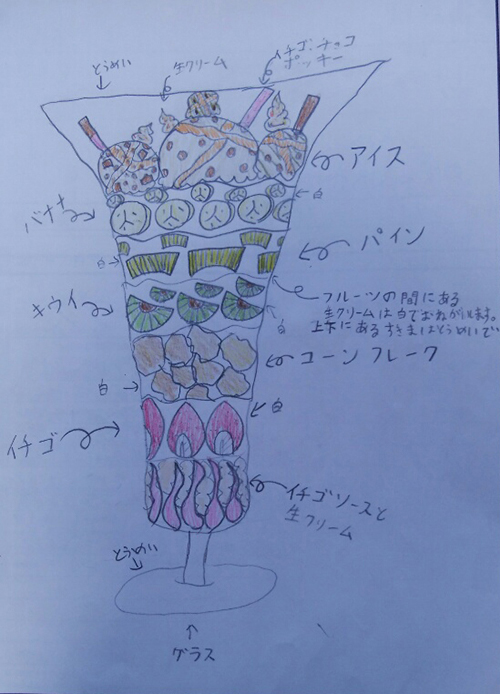 とうめい
生クリーム
イチゴ、チョコ
ポッキー
アイス
バナナ
白
パイン
白
キウイ
フルーツの間にある
生クリームは白でおねがいします。
上下にあるすきまはとうめいで
白
コーンフレーク
白
白
イチゴ
イチゴソースと
生クリーム
とうめい
グラス